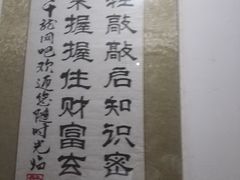 敲敲启知识密
来握握住财富玄
千龙网吧欢迎您随时光临